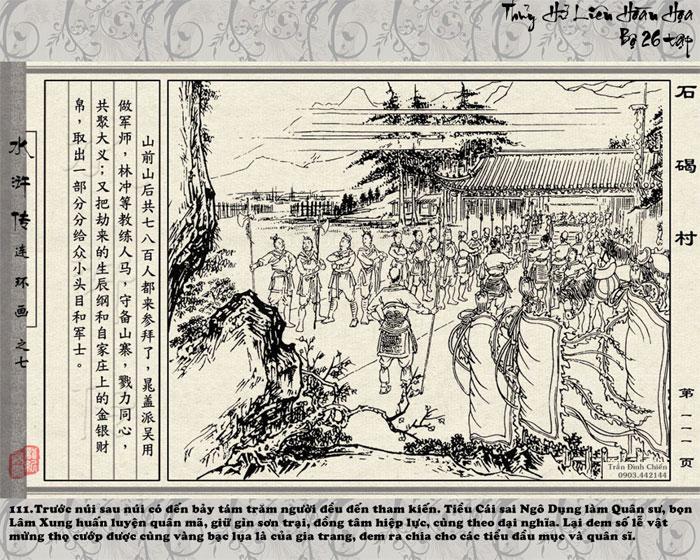 Thủy Hử Liên Hoàn Họa
Bộ 26 tập
石碣村
第一一一页
水浒传连环画之七
山前山后共七八百人都来参拜了，晁盖派吴用
做军师，林冲等教练人马，守备山寨，戮力同心，
共聚大义；又把劫来的生辰纲和自家庄上的金银财
帛，取出一部分分给众小头目和军士。
Trần Đình Chiến
0903.442144
111.Trước núi sau núi có đến bảy tám trăm người đều đến tham kiến. Tiều Cái sai Ngô Dụng làm Quân sư, bọn
Lâm Xung huấn luyện quân mã, giữ gìn sơn trại, đồng tâm hiệp lực, cùng theo đại nghĩa. Lại đem số lễ vật
mừng thọ cướp được cùng vàng bạc lụa là của gia trang, đem ra chia cho các tiểu đầu mục và quân sĩ.